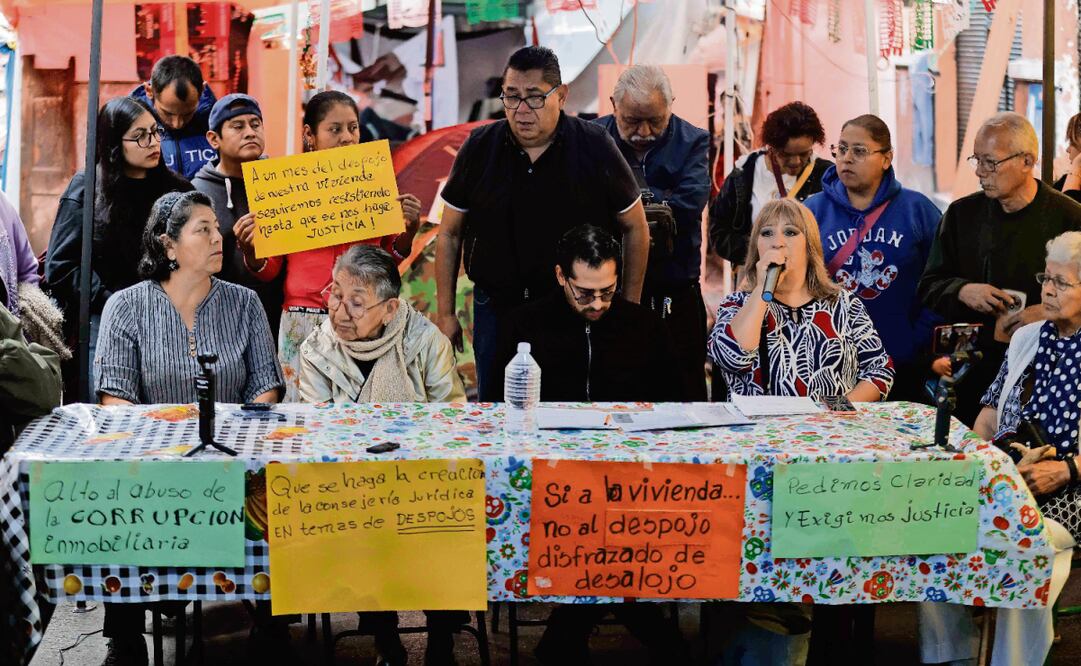 A un mes del despojo
de nuestra vivienda
seguiremos resistiendo
hasta que se nos haga
JUSTICIA!
JORDAN
Alto al abuso de
la CORRUPCION
inmobiliaria
Que se haga la creación
de la consejería Jurídica
EN temas de DESPOJOS
Si a la vivienda...
no al despojo
disfrazado de
desalojo
Pedimos Claridad
Y Exigimos Justicia